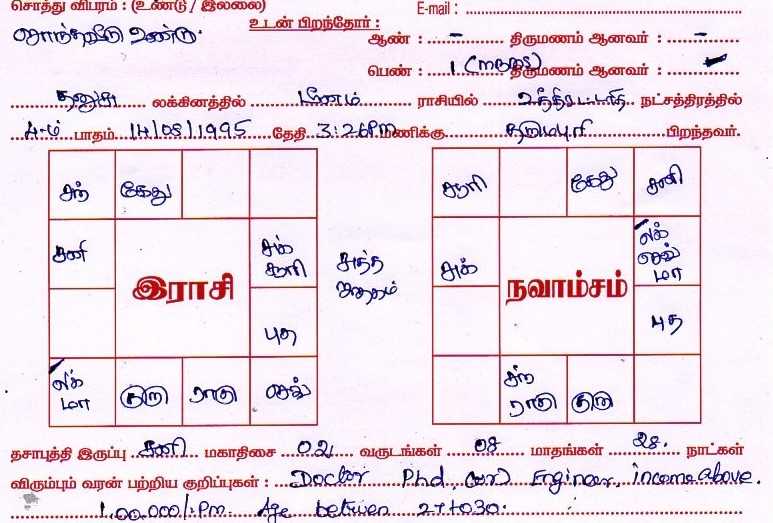 சொத்து விபரம் : (உண்டு / இல்லை) E-mail :
சொந்தவீடு உண்டு. உடன் பிறந்தோர் :
ஆண் : - திருமணம் ஆனவர் : -
பெண் : 1 திருமணம் ஆனவர் :
தனுசு லக்கினத்தில் மீனம் ராசியில் உத்திரட்டாதி நட்சத்திரத்தில்
4-ம் பாதம் 14/08/1995 தேதி 3:26PM மணிக்கு தருமபுரி பிறந்தவர்.
சந் கேது
சனி சுக் சூரி
இராசி
புத
லக் மா குரு ராகு செவ்
சுத்த ஜாதகம்
சூரி கேது சனி
சுக் லக் செவ் மா
நவாம்சம்
புத
சந் ராகு குரு
தசாபுத்தி இருப்பு சனி மகாதிசை 02 வருடங்கள் 08 மாதங்கள் 28. நாட்கள்
விரும்பும் வரன் பற்றிய குறிப்புகள் : Doctor Phd, (or) Engineer, income above.
1,00,000/- Pm. Age between 27 to 30.